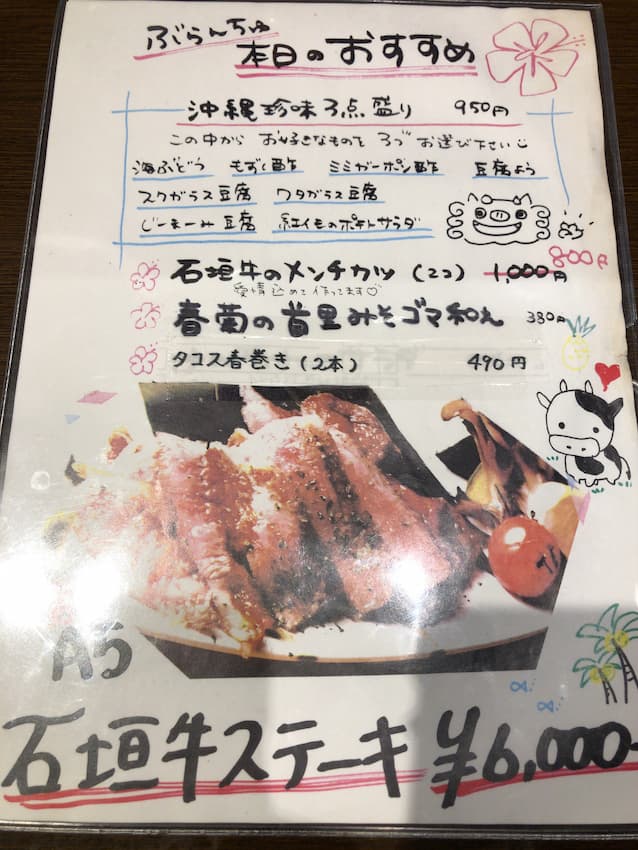 ぶらんちゅ
本日のおすすめ
沖縄珍味3点盛り 950円
この中から お好きなものを 3つ お選び下さい
海ぶどう もずく酢 ミミガーポン酢 豆腐よう
スクガラス豆腐 ワタガラス豆腐
じーまーみ豆腐 紅イモのポテトサラダ
800円
石垣牛のメンチカツ (2コ) 1,000円
愛情込めて作ってます♡
春菊の首里みそゴマ和え 380円
タコス春巻き (2本) 490円
A5
石垣牛ステーキ ¥6,000-